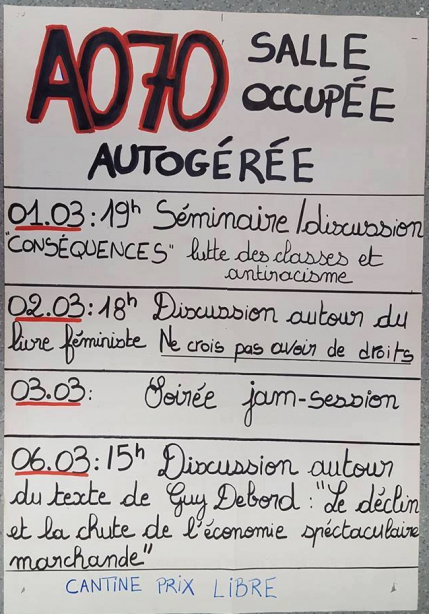 A070 SALLE
OCCUPÉE
AUTOGÉRÉE
01.03 : 19h Séminaire/discussion
"CONSÉQUENCES" lutte des classes et
antiracisme
02.03 : 18h Discussion autour du
livre féministe Ne crois pas avoir de droits
03.03 : Soirée jam-session
06.03 : 15h Discussion autour
du texte de Guy Debord : "Le déclin
et la chute de l'économie spéctaculaire
marchande"
CANTINE PRIX LIBRE